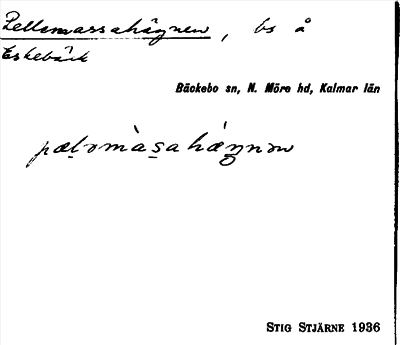 Pellemassahägnen, bs å
Eskebäck
Bäckebo sn, N. Möre hd, Kalmar län
pæḻomàs̱ahægnɘn
STIG STJÄRNE 1936